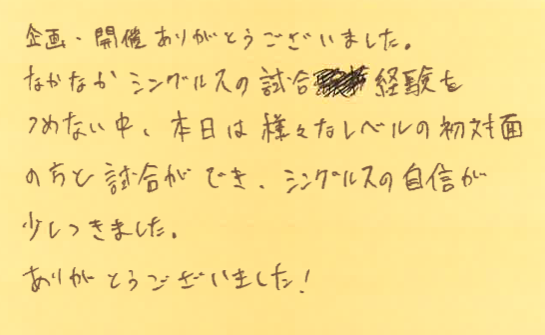 企画・開催ありがとうございました。
なかなかシングルスの試合経験を
つめない中、本日は様々なレベルの初対面
の方と試合ができ、シングルスの自信が
少しつきました。
ありがとうございました！